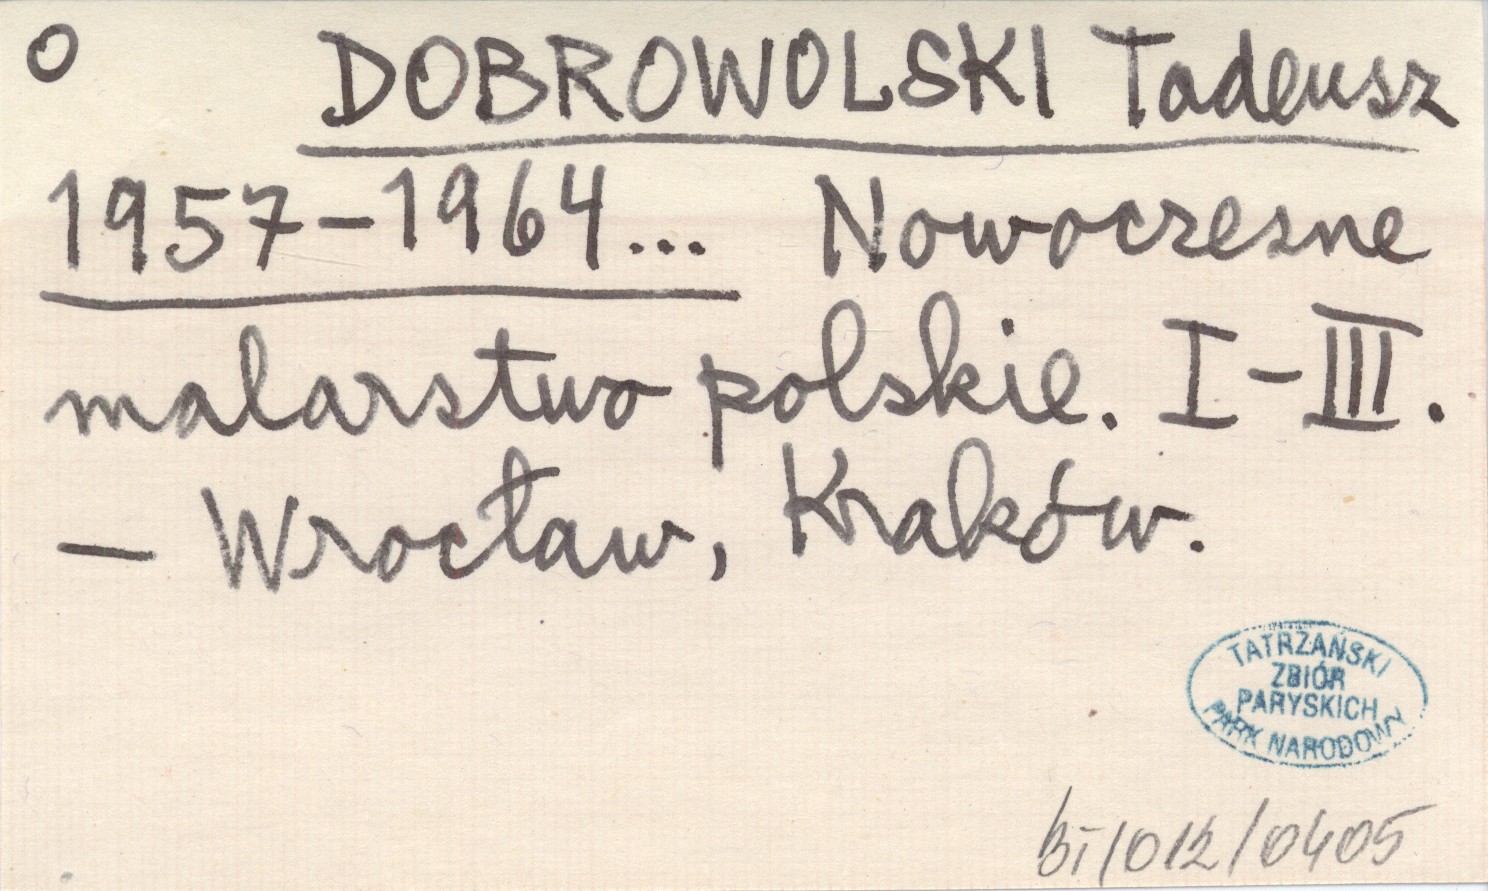 O DOBROWOLSKI Tadeusz
1957-1964... Nowoczesne
malarstwo polskie. I-III.
- Wrocław, Kraków.
TATRZAŃSKI
ZBIÓR
PARYSKICH
PARK NARODOWY
bi/012/0405